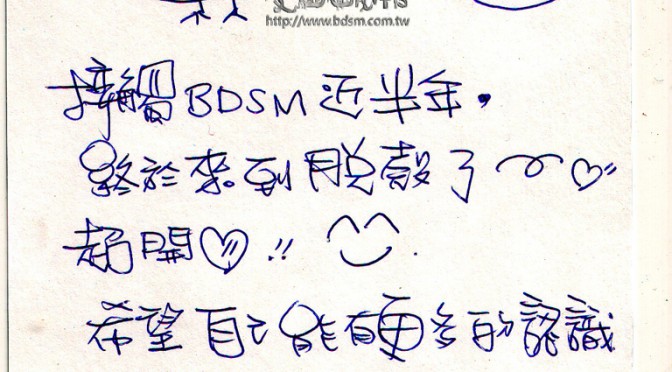 http://www.bdsm.com.tw
接觸BDSM近半年，
終於來到脫殼了
超開♡!!
希望自己能有更多的認識